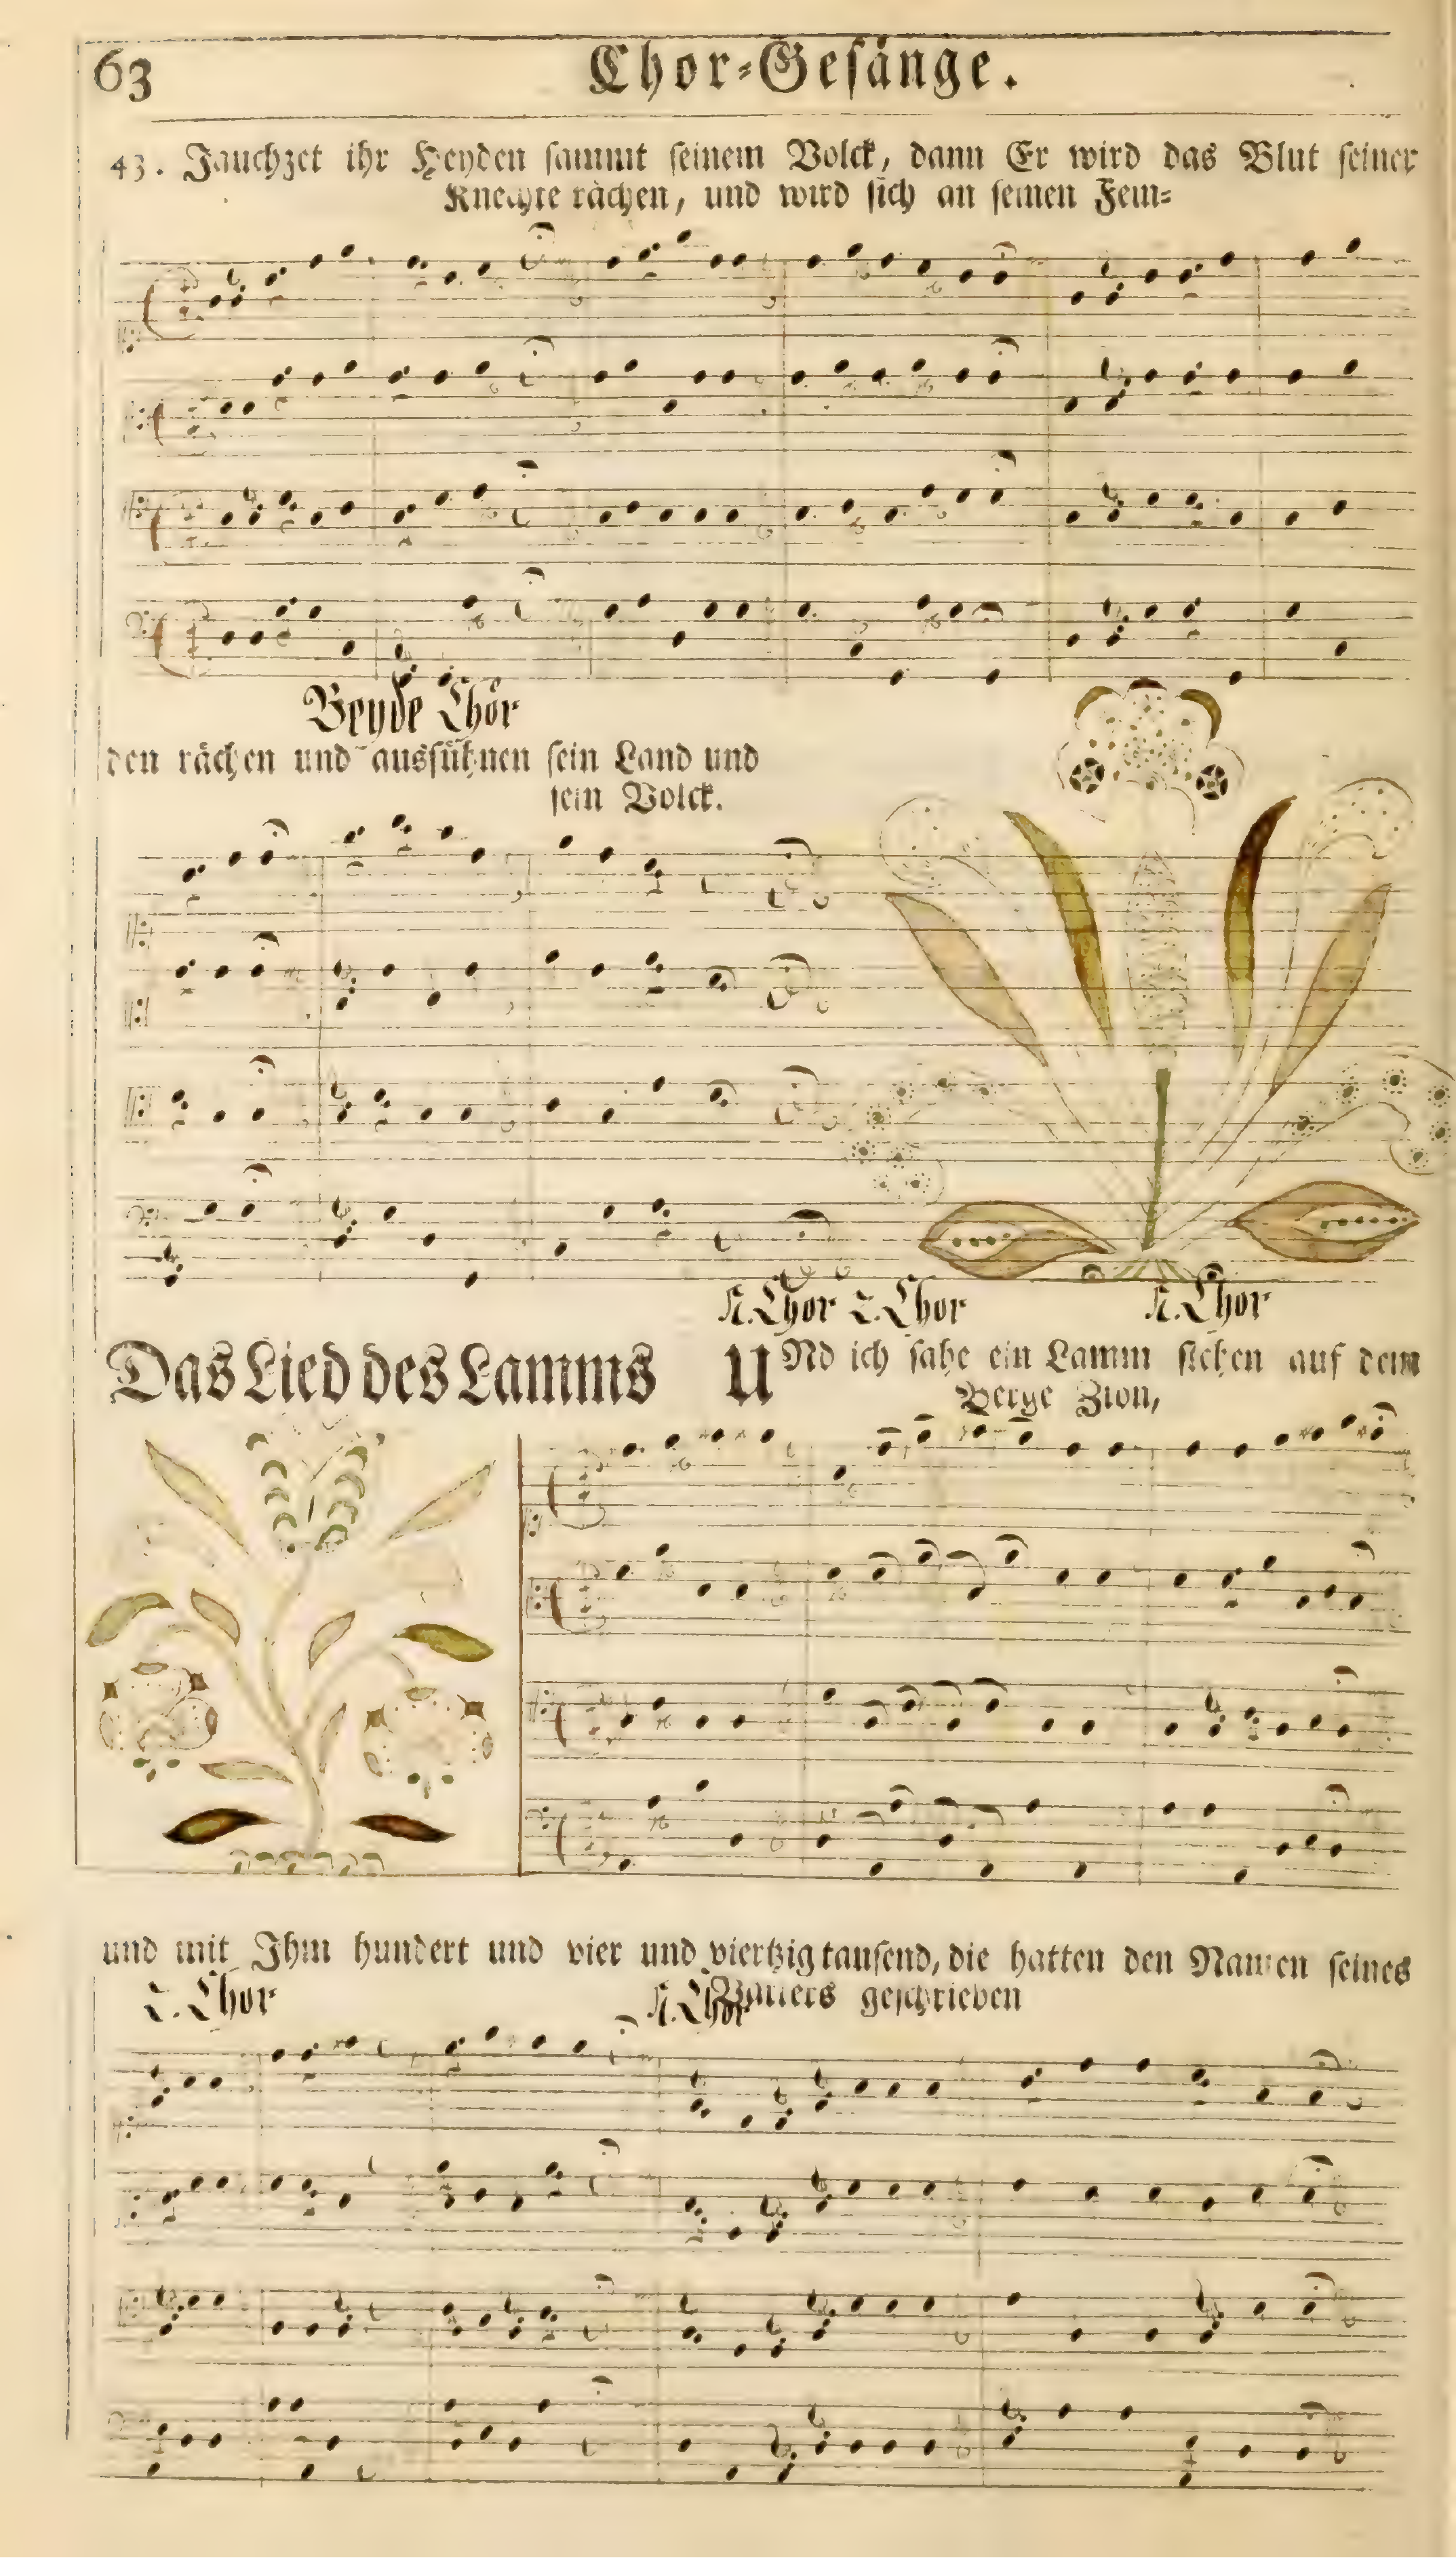 63
Chor-Gesänge.
43. Jauchzet ihr Heyden sammt seinem Volck, dann Er wird das Blut seiner
Knechte rächen, und wird sich an seinen Fein-
Beyde Chör
den rächen und aussühnen sein Land und
sein Volck.
1. Chor 2. Chor 1. Chor
Das Lied des Lamms
UNd ich sahe ein Lamm stehen auf dem
Berge Zion,
und mit Ihm hundert und vier und viertzig tausend, die hatten den Namen seines
2. Chor 1. Chor Vatters geschrieben